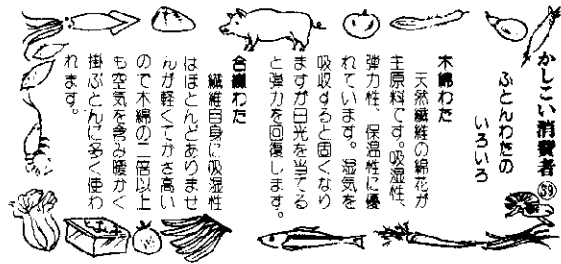 かしこい消費者㊴
ふとんわたの
いろいろ
木綿わた
天然繊維の綿花が
主原料です。吸湿性、
弾力性、保温性に優
れています。湿気を
吸収すると固くなり
ますが日光を当てる
と弾力を回復します。
合繊わた
繊維自身に吸湿性
はほとんどありませ
んが軽くてかさ高い
ので木綿の二倍以上
も空気を含み暖かく
掛ぶとんに多く使わ
れます。